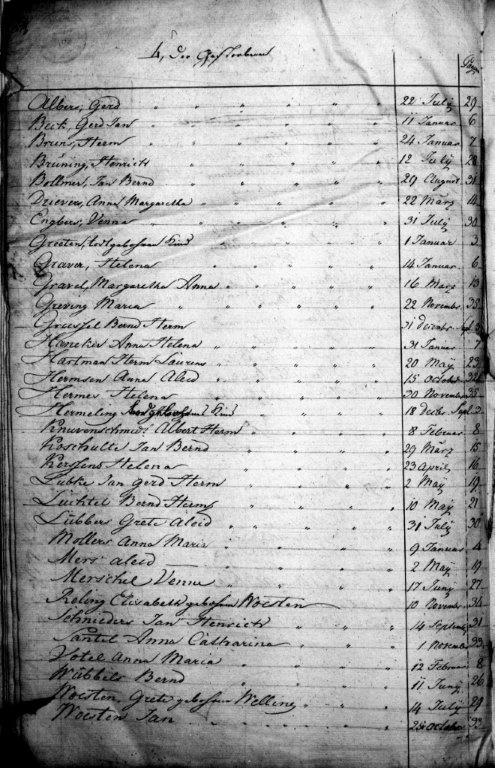 4, Der Gestorbenen
Pag
Albers, Gerd 22 July 29
Beck, Gerd Jan 11 Januar 6
Bruns, Herm 24 Januar 7
Brüning, Henrich 12 July 28
Bollmer, Jan Bernd 29 August 31
Drievers, Anna Margaretha 22 März 14
Engbers, Venna 31 July 30
Greeten, todtgebohren Kind 1 Januar 3
Graver, Helena 14 Januar 6
Gravel, Margaretha Anna 16 März 13
Greving Maria 22 November
Gruesfel Bernd Herm 31 December
Haneker Anna Helena 31 Januar
Hartman Herm Laurens 20 May 23
Hermsen Anna Aleid 15 October
Hermes Helena 20 November
Hermeling Kind 18 Decbr Sept
Knuvenschmidt Albert Herm 8 Februar 8
Koschulte Jan Bernd 29 März 15
Kerstens Helena 23 April 16
Lubke Jan Gerd Herm 2 May 19
Luchtel Bernd Herm 10 May 21
Lübbers Grete Aleid 31 July 30
Mollers Anna Maria 9 Januar 4
Mers Aleid 2 May 19
Merschel Venna 17 Juny 27
Roling Elisabeth gebohren Woesten 10 November 34
Schnieders Jan Henrich 14 September 31
Santel Anna Catharina 1 November 33
Votel Anna Maria 12 Februar 8
Wübbels Bernd 11 Juny 26
Woesten Grete gebohren Welling 14 July 29
Woesten Jan 28 October 32